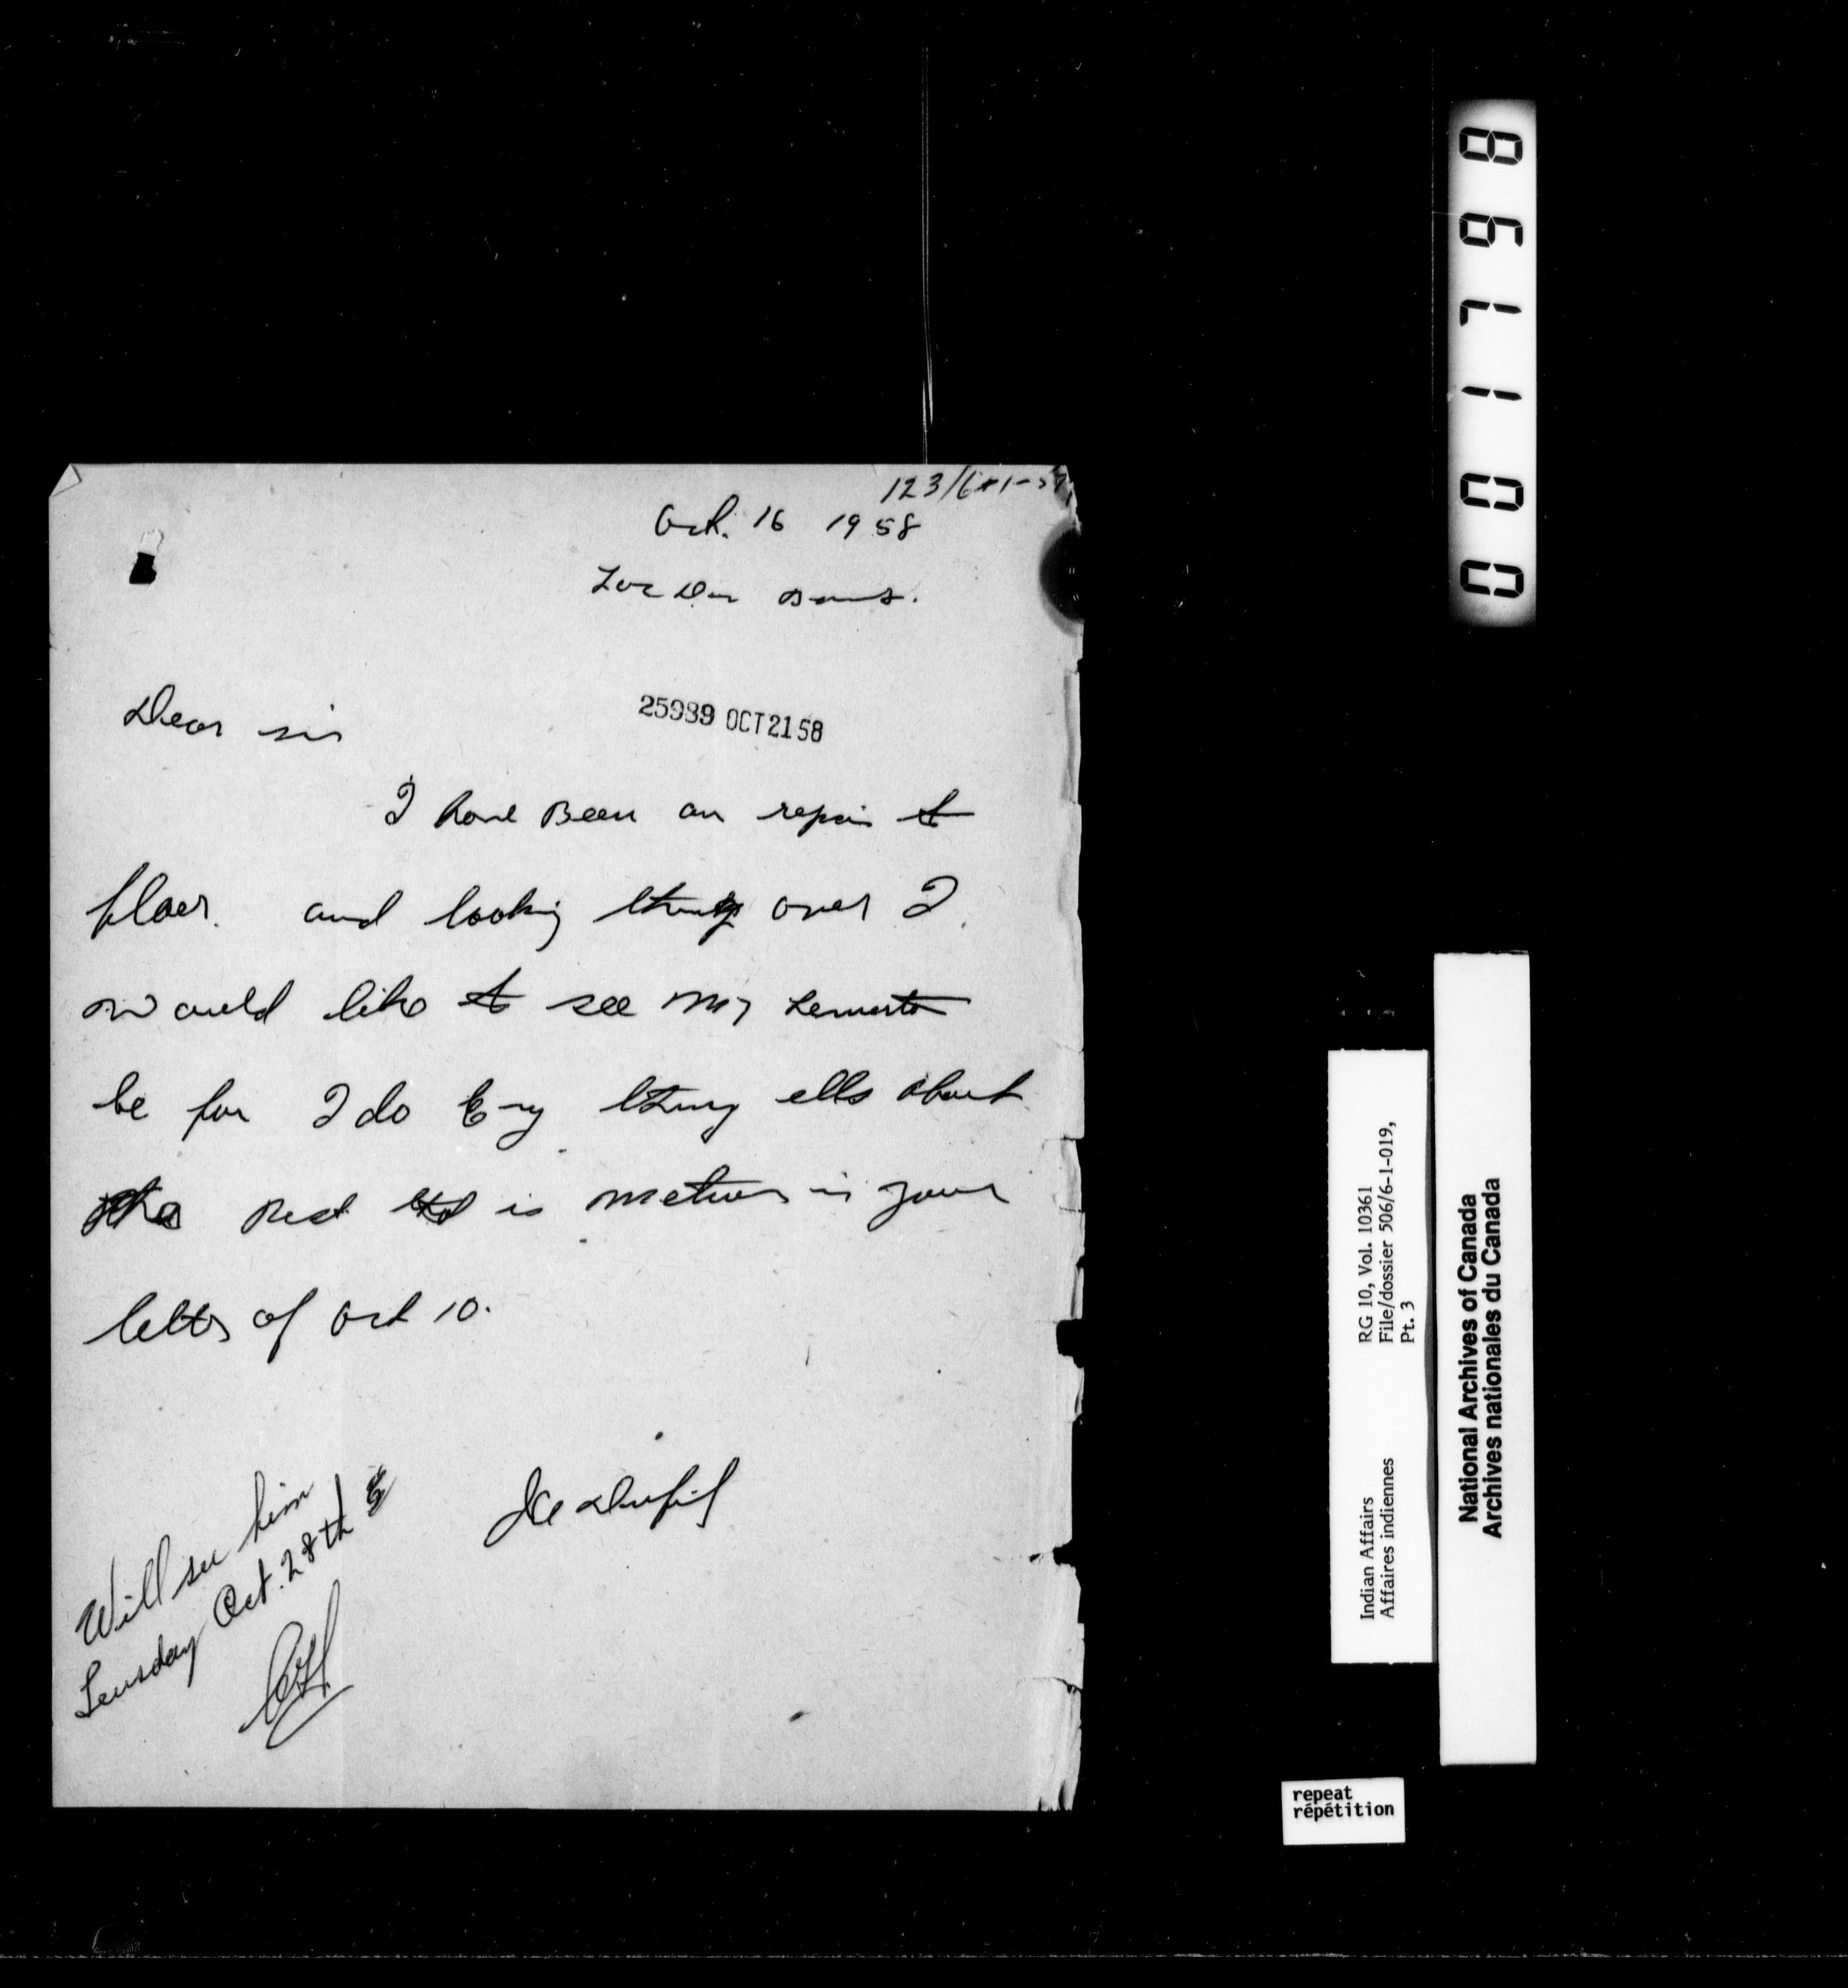 Oct. 16 1958
Dear sir
25989 OCT 21 58
I have Been an repair to
floor. and looking things over I
would like to see my
be for I do Eny thing ells about
the Rest is in your
letter of Oct 10.
Will see him
Tuesday Oct. 28th
001798
Indian Affairs RG 10, Vol. 10361
Affaires indiennes File/dossier 506/6-1-019,
Pt. 3
National Archives of Canada
Archives nationales du Canada
repeat
répétition